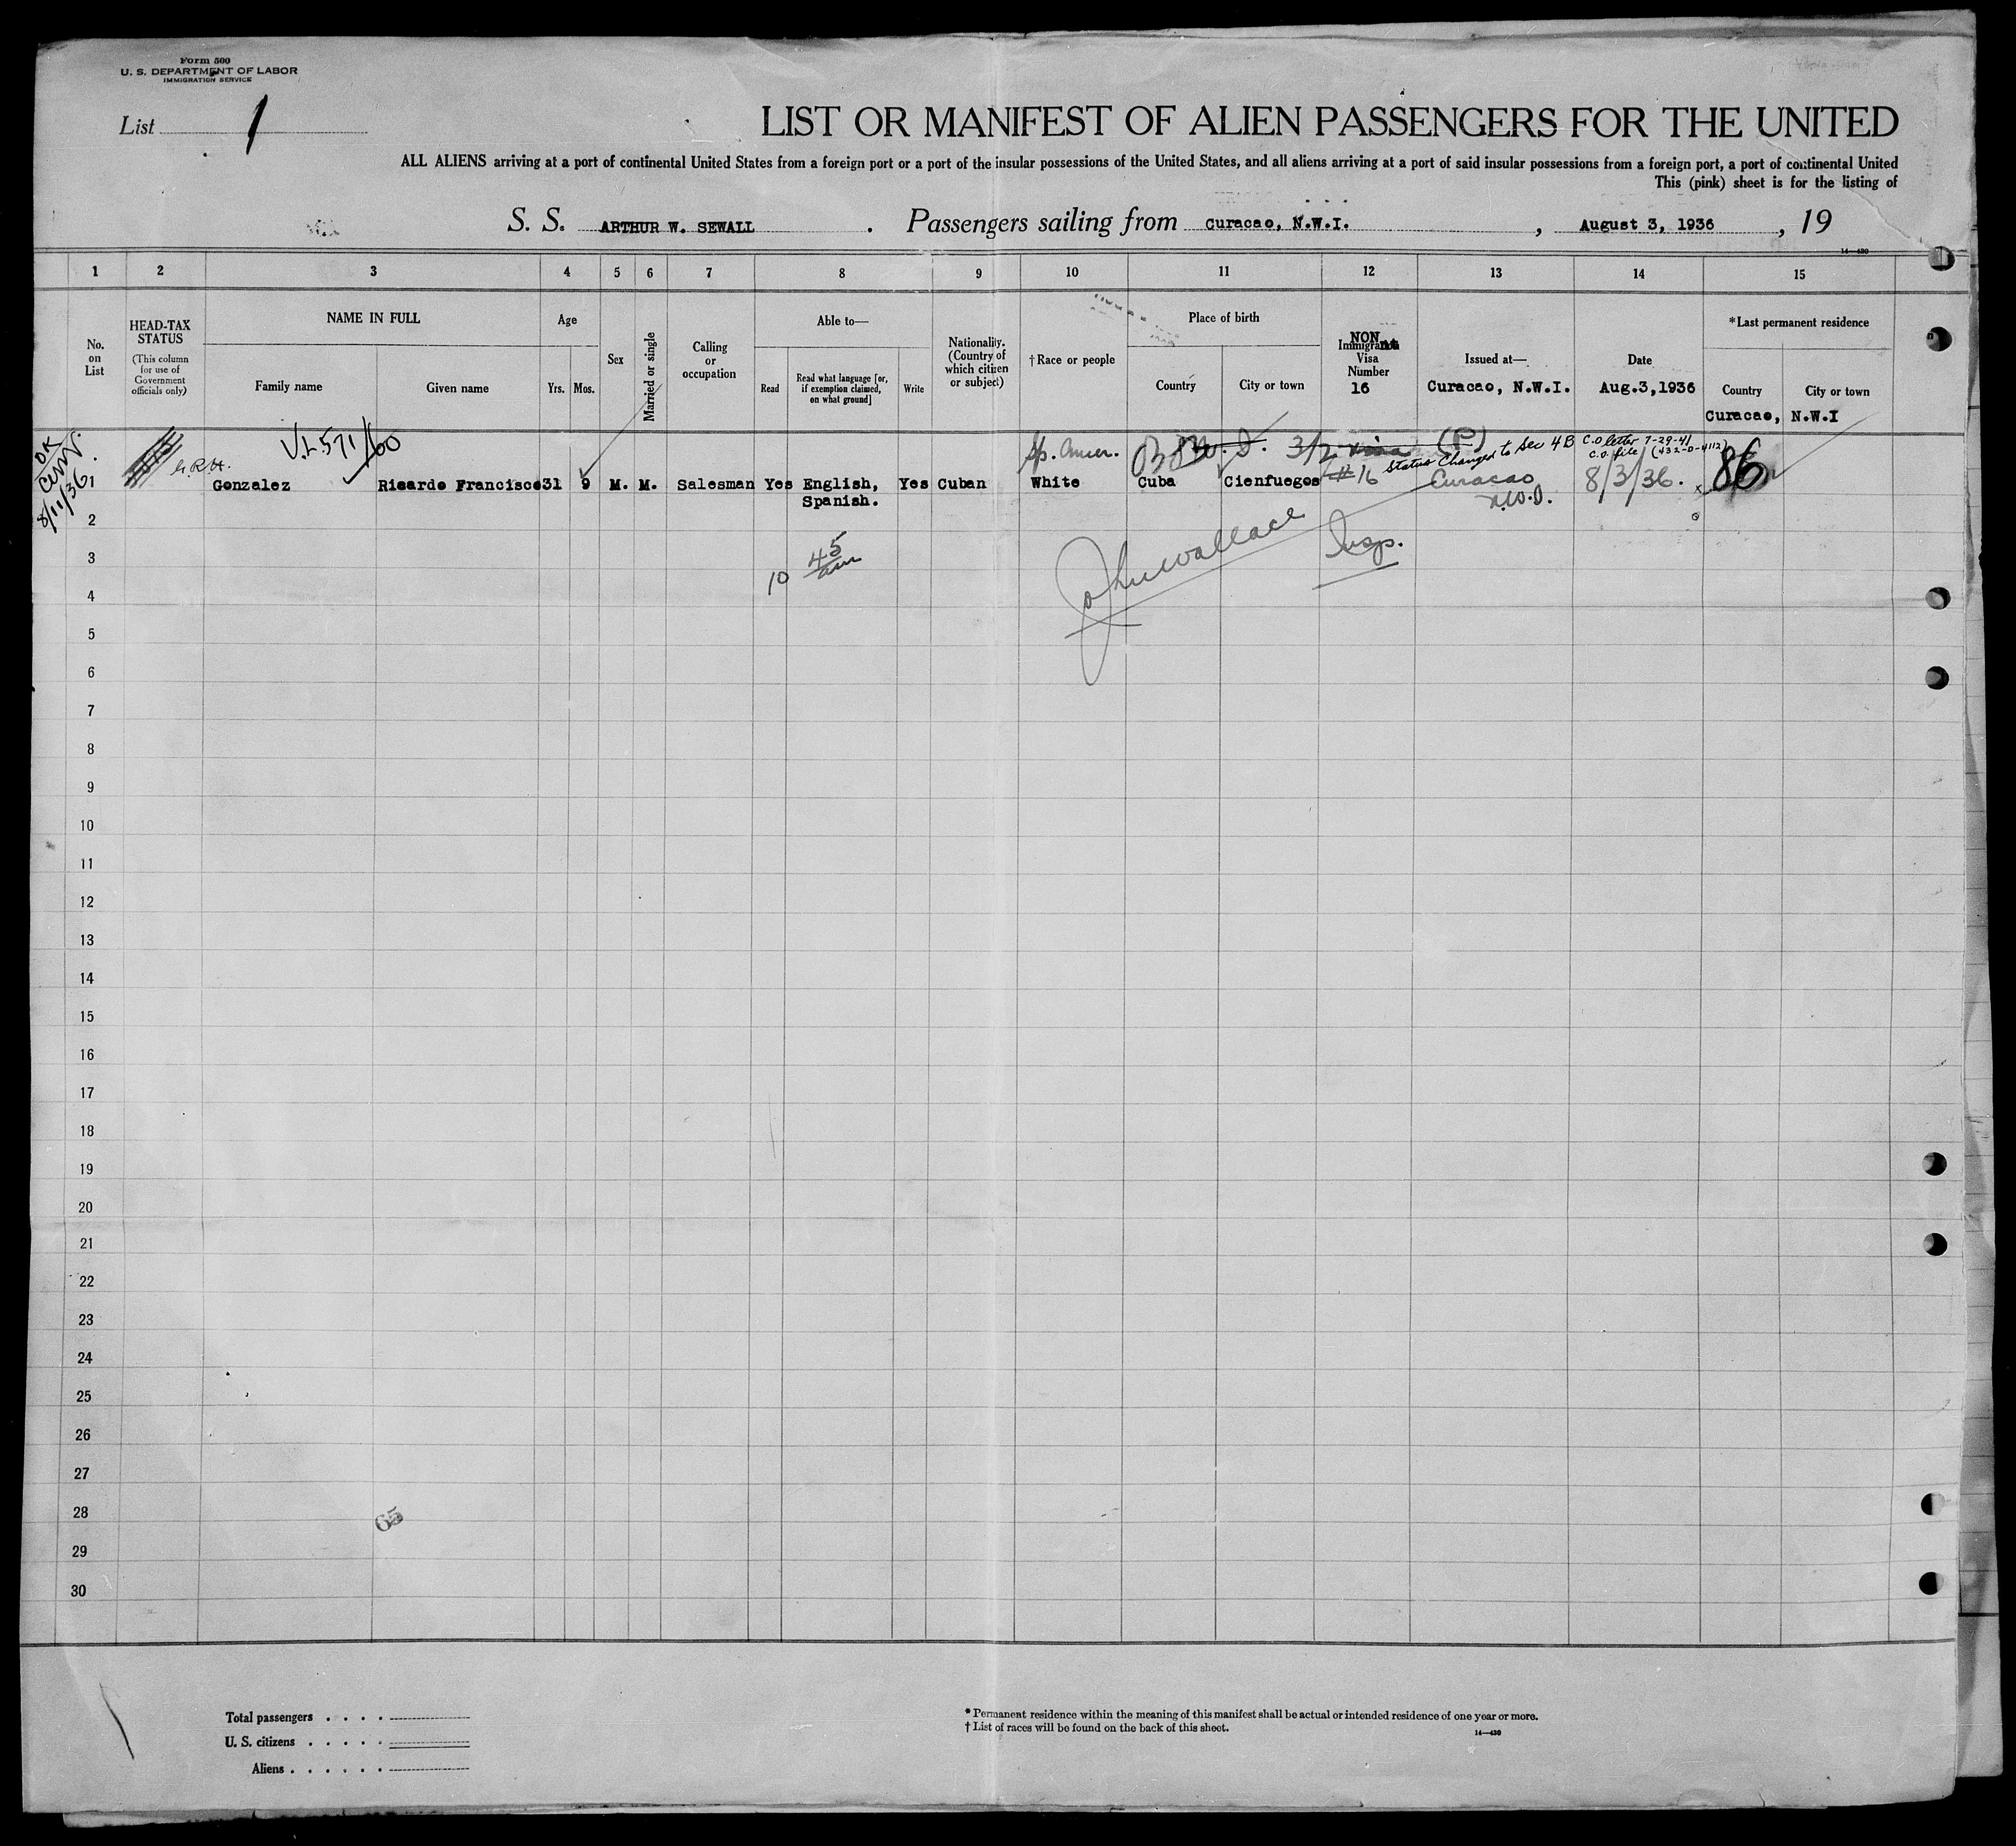 Form 500
U. S. DEPARTMENT OF LABOR
IMMIGRATION SERVICE
List 1
LIST OR MANIFEST OF ALIEN PASSENGERS FOR THE UNITED
ALL ALIENS arriving at a port of continental United States from a foreign port or a port of the insular possessions of the United States, and all aliens arriving at a port of said insular possessions from a foreign port, a port of continental United
This (pink) sheet is for the listing of
S. S. ARTHUR W. SEWALL. Passengers sailing from Curacao, N.W.I., August 3, 1936, 19
14—430
1 2 3 4 5 6 7 8 9 10 11 12 13 14 15
No. on List
HEAD-TAX STATUS
(This column for use of Government officials only)
NAME IN FULL
Family name
Given name
Age
Yrs.
Mos.
Sex
Married or single
Calling or occupation
Able to—
Read
Read what language [or, if exemption claimed, on what ground]
Write
Nationality. (Country of which citizen or subject)
†Race or people
Place of birth
Country
City or town
NON
Immigrant
Visa
Number
16
Issued at—
Curacao, N.W.I.
Date
Aug.3,1936
*Last permanent residence
Country
City or town
Curacao, N.W.I
OK
8/11/36
G.R.H.
V.L.571/60
Sp. Amer.
3/2
(P)
Status Changed to Sec 4B
C.O letter 7-29-41
C.O. file (432-0-4112)
1 Gonzalez Ricardo Francisco 31 9 M. M. Salesman Yes English, Yes Cuban White Cuba Cienfuegos # 16 Curacao 8/3/36. x 86
Spanish.
N.W.I.
2
3
10 45 am
John Wallace Insp.
4
5
6
7
8
9
10
11
12
13
14
15
16
17
18
19
20
21
22
23
24
25
26
27
28
65
29
30
Total passengers . . . .
U. S. citizens . . . . .
Aliens . . . . . .
* Permanent residence within the meaning of this manifest shall be actual or intended residence of one year or more.
† List of races will be found on the back of this sheet.
14—430